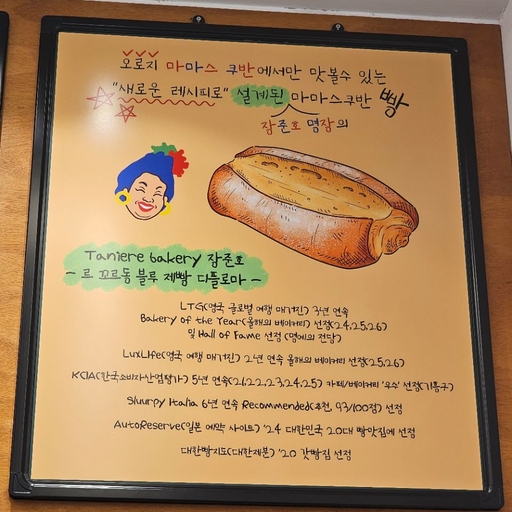 오로지 마마스 쿠반에서만 맛볼수 있는
"새로운 레시피로" 설계된 마마스쿠반 빵
장준호 명장의
Taniere bakery 장준호
- 르 꼬르동 블루 제빵 디플로마 -
LTG(영국 글로벌 여행 매거진) 3년 연속
Bakery of the Year(올해의 베이커리) 선정(24,25,26)
및 Hall of Fame 선정 (명예의 전당)
LuxLife(영국 여행 매거진) 2년 연속 올해의 베이커리 선정(25,26)
KCIA(한국소비자산업평가) 5년 연속(21,22,23,24,25) 카페/베이커리 '우수' 선정(기흥구)
Sluurpy Italia 6년 연속 Recommended(추천, 93/100점) 선정
AutoReserve(일본 예약 사이트) '24 대한민국 20대 빵맛집에 선정
대한빵지도(대한제분) '20 갓빵집 선정